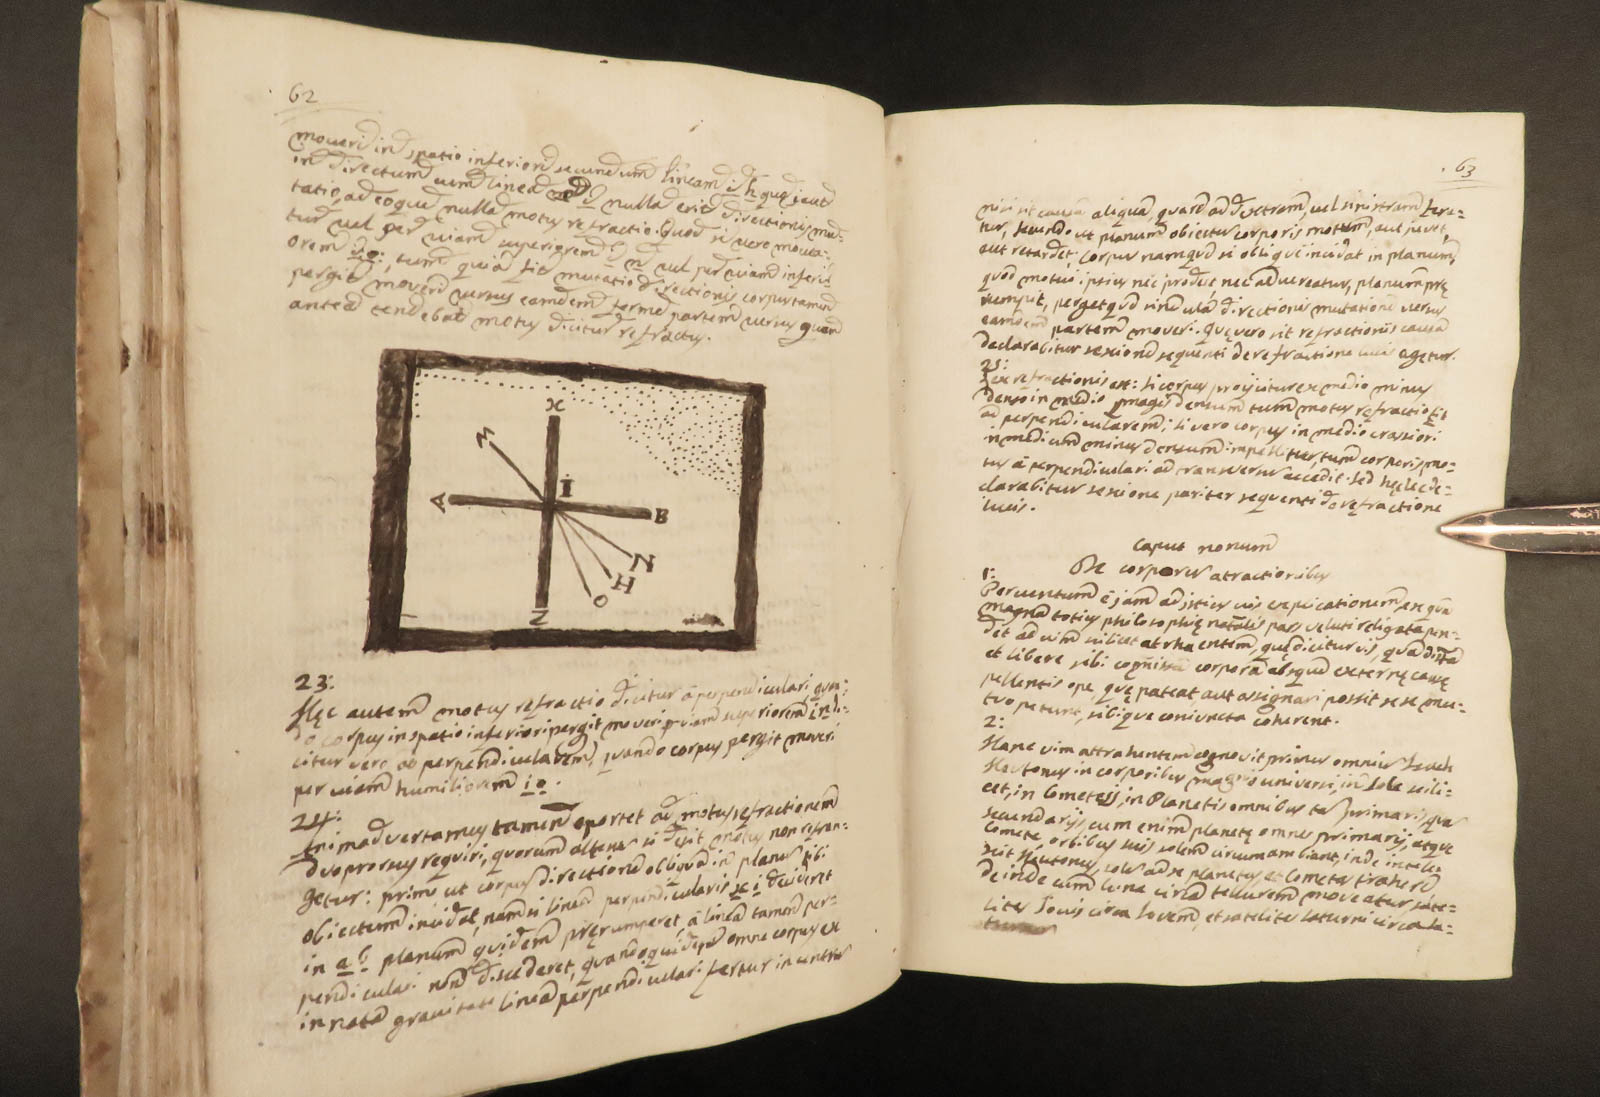 62
moveri in spatio inferiori secundum lineam i h quę jacet
in directum cum linea nulla erit directionis mu-
tatio, adeoque nulla motus refractio. Quod si vero mouea-
tur vel per viam superiorem i n vel per viam inferi-
orem i o: tum quia sit mutatio directionis corpus tamen
pergit moveri versus eamdem ferme partem versus quam
antea tendebat motus dicitur refractus.
X
M
I
A
B
N
H
O
Z
23:
Hęc autem motus refractio dicitur a perpendiculari, quan-
do corpus in spatio inferiori pergit moveri p viam superiorem i n di-
citur vero ad perpendicularem, quando corpus pergit moveri
per viam humiliorem i o.
24:
Animadvertamus tamen oportet ad motus refractionem
duo prorsus requiri, quorum alterum si desit motus non refran-
getur: primo ut corpus directione obliqua in planum sibi
obiectum incidat, nam si linea perpendicularis x i decideret
in a b planum quidem pręrumperet, a linea tamen per-
pendiculari non discederet, quandoquidem omne corpus ex
innata gravitate linea perpendiculari fertur in centrum
63
nisi sit causa aliqua, quæ ad dextram, vel sinistram fera-
tur, secundo ut planum obiectum corporis motum, aut juvet,
aut retardet, corpus namque si oblique incidat in planum,
quod motui ipsius nec prodest, nec adversatur, planum prę
rumpit, pergetque sine ulla directionis mutatione versus
eamdem partem moveri. Quę vero sit refractionis causa
declarabitur sexione sequenti de refractione lucis agetur.
25:
Lex refractionis est: si corpus projicitur ex medio minus
denso in medio magis densum tum motus refractio fit
ad perpendicularem; si vero corpus in medio crassiori
in medium minus densum impellitur, tum corporis mo-
tus a perpendiculari ad transversum accedit. Sed hęc lex de-
clarabitur sexione pariter sequenti de refractione
lucis.
Caput nonum
De corporis atractionibus
1:
Perventum ē jam ad istius vis explicationem, ex qua
magna totius philosophię natalis pars veluti religata pen-
det ad vim scilicet atrhaentem, quę dicitur vis, qua dissita
et libere sibi comissa corpora absque externę causę
pellentis ope, quę pateat, aut assignari possit sese mu-
tuo petunt, sibique coniuncta coherent.
2:
Hanc vim attrahentem cognovit primus omnium Isaach
Neutonus in corporibus magis universi, in Sole scili-
cet, in Cometis, in Planetis omnibus tam primarijs quam
secundarijs, cum enim planetę omnes primarij, atque
Cometę, orbibus suis solem circumambiant, inde intelle-
xit Neutonus, solem ad se planetas, et Cometas trahere
deinde cum luna circa tellurem moveatur, sate-
lites Jovis circa Jovem, et satelites saturni circa sa-
turnum